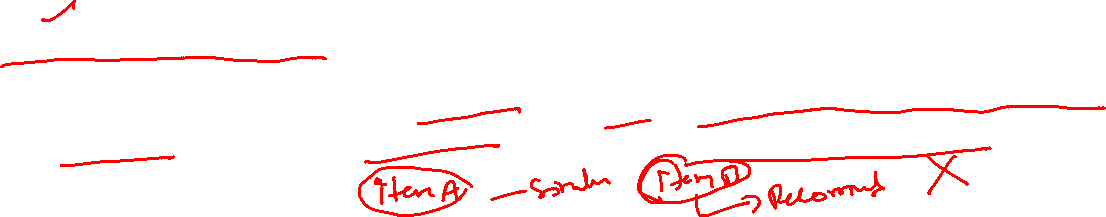 Item A – Similar Item B
→ Recommend X